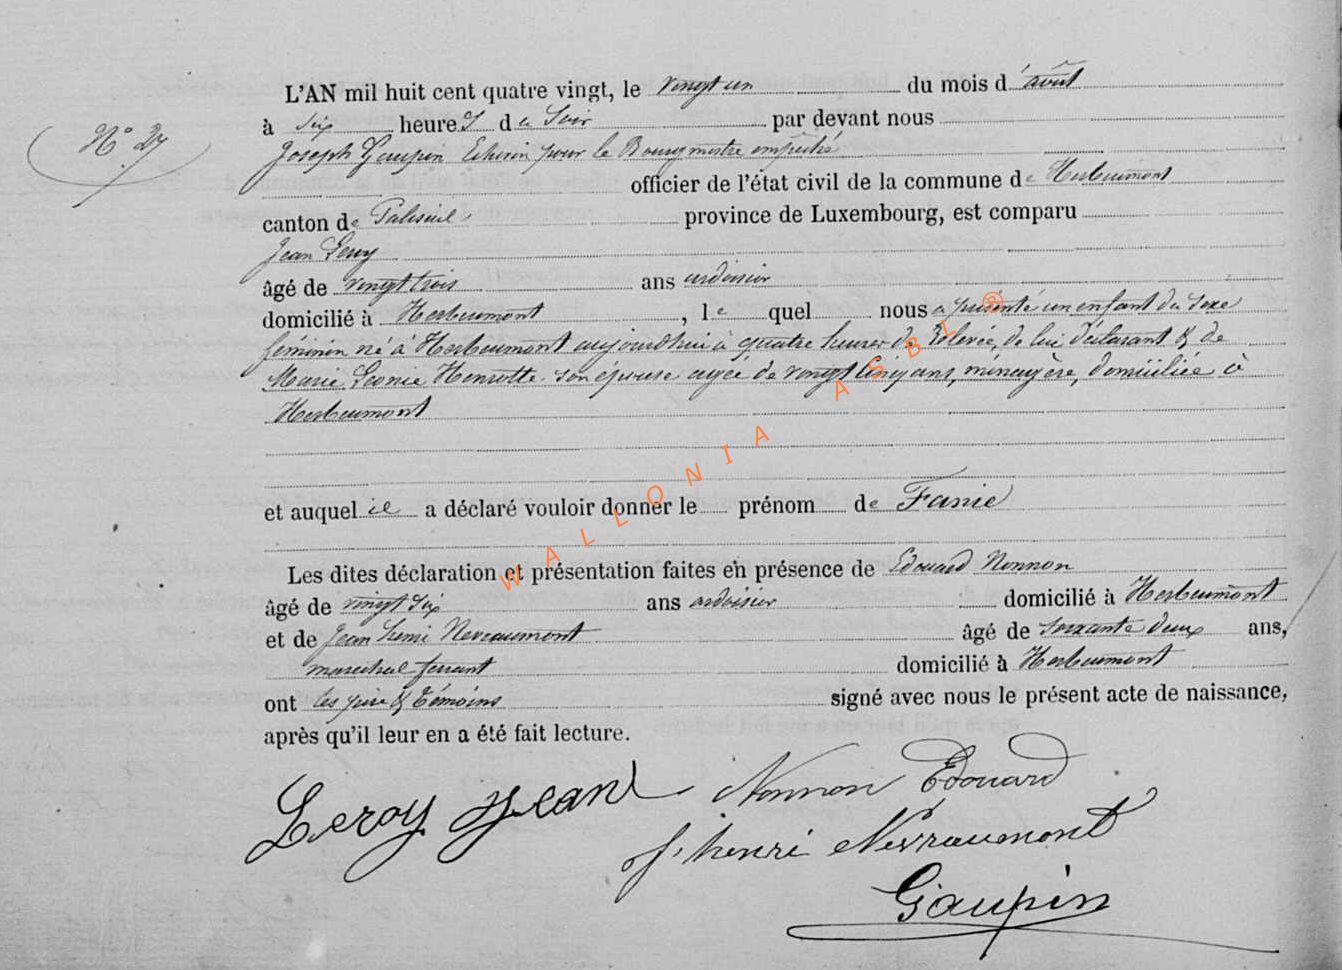 N° 27
L'AN mil huit cent quatre vingt, le vingt un du mois d'août
à six heures du Soir par devant nous
Joseph Gaupin Echevin pour le Bourgmestre empêché
officier de l'état civil de la commune de Herbeumont
canton de Paliseul province de Luxembourg, est comparu
Jean Leroy
âgé de vingt trois ans ardoisier
domicilié à Herbeumont, le quel nous a présenté un enfant du sexe
féminin né à Herbeumont aujourdhui à quatre heures de relevée, de lui déclarant & de
Marie Leonie Henrotte son épouse agée de vingt cinq ans, ménagère, domiciliée à
Herbeumont
et auquel il a déclaré vouloir donner le prénom de Fanie
Les dites déclaration et présentation faites en présence de Edouard Nonnon
âgé de vingt six ans ardoisier domicilié à Herbeumont
et de Jean henri Nevraumont âgé de soixante deux ans,
marechal ferrant domicilié à Herbeumont
ont les père & témoins signé avec nous le présent acte de naissance,
après qu'il leur en a été fait lecture.
Leroy Jean Nonnon Edouard
J. henri Nevraumont
Gaupin
WALLONIA ASBL ®